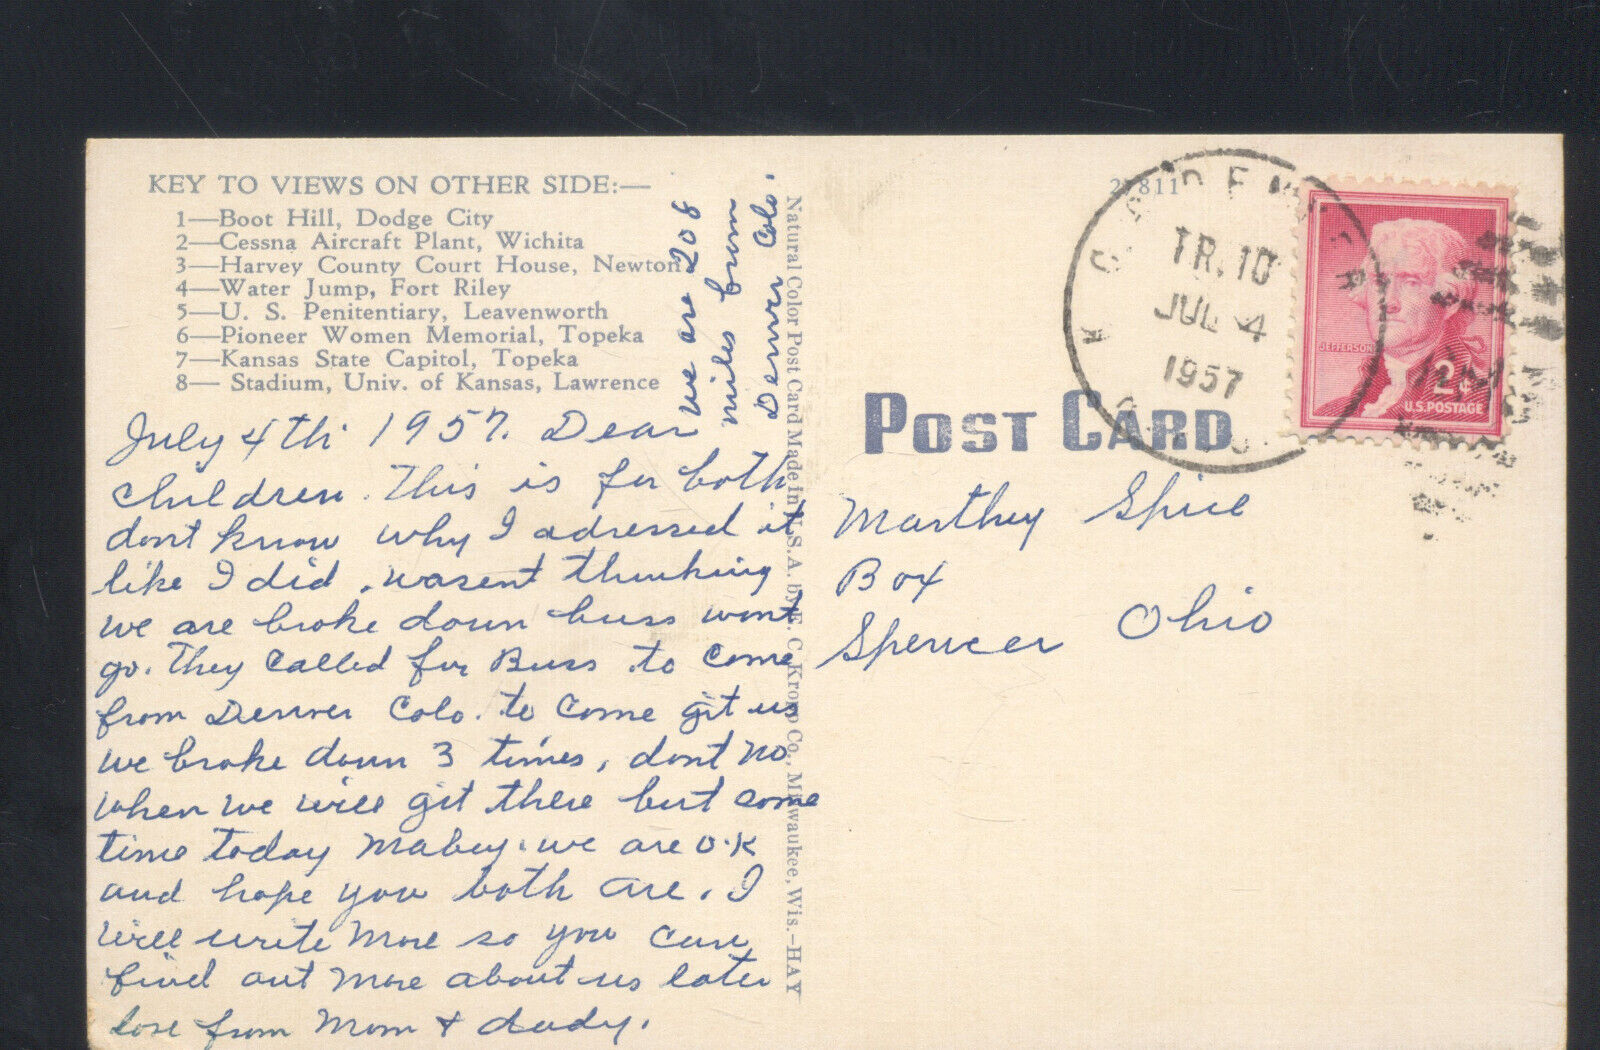 KEY TO VIEWS ON OTHER SIDE:—
1—Boot Hill, Dodge City
2—Cessna Aircraft Plant, Wichita
3—Harvey County Court House, Newton
4—Water Jump, Fort Riley
5—U. S. Penitentiary, Leavenworth
6—Pioneer Women Memorial, Topeka
7—Kansas State Capitol, Topeka
8— Stadium, Univ. of Kansas, Lawrence
we are 208
miles from
Denver Colo.
July 4th 1957. Dear
children. This is for both
dont know why I adressed it
like I did. wasent thinking
we are broke down buss wont
go. They called for Buss to come
from Denver Colo. to come git us
we broke down 3 times, dont no
when we will git there but some
time today Mabey. we are O.K
and hope you both are. I
will write more so you can
find out more about us later
love from Mom + dady.
Natural Color Post Card Made in U.S.A. by E. C. Kropp Co., Milwaukee, Wis.—HAY
POST CARD
TR. 10
JUL 4
1957
JEFFERSON
2¢
U.S. POSTAGE
Marthey Spice
Box
Spencer Ohio